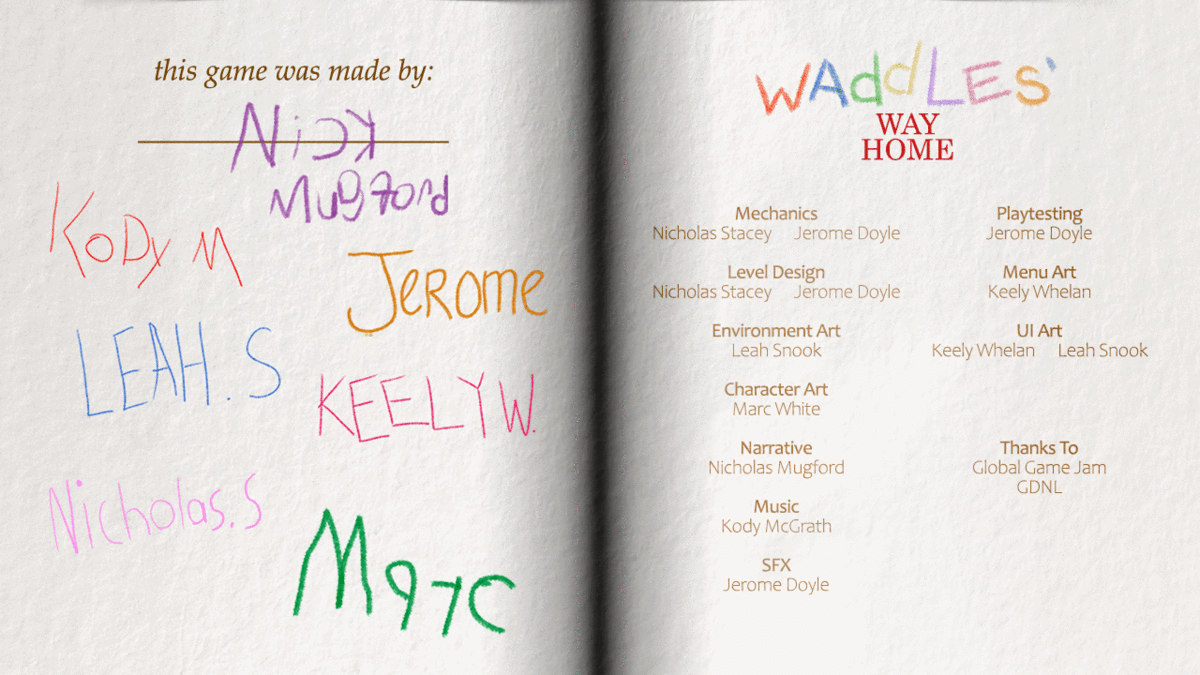 this game was made by:
Nick
Mugford
Kody M
Jerome
LEAH. S
KEELY W.
Nicholas. S
Marc
WAddLES'
WAY
HOME
Mechanics
Nicholas Stacey Jerome Doyle
Level Design
Nicholas Stacey Jerome Doyle
Environment Art
Leah Snook
Character Art
Marc White
Narrative
Nicholas Mugford
Music
Kody McGrath
SFX
Jerome Doyle
Playtesting
Jerome Doyle
Menu Art
Keely Whelan
UI Art
Keely Whelan Leah Snook
Thanks To
Global Game Jam
GDNL